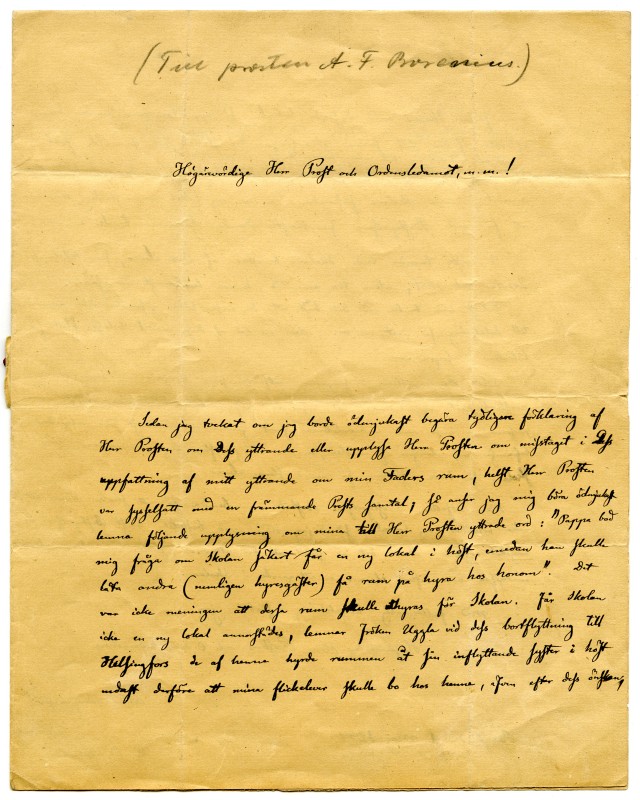 (Till prosten A. F. Borenius.)
Högärevördige Herr Prost och Ordensledamot, m. m. !
Sedan jag tvekat om jag borde ödmjukast begära tydligare förklaring af
Herr Prosten om Dess yttrande eller upplysa Herr Prosten om misstaget i Dess
uppfattning af mitt yttrande om min Faders rum, helst Herr Prosten
var sysselsatt med en främmande Prosts samtal; så anser jag mig böra ödmjukast
lemna följande upplysning om mina till Herr Prosten yttrade ord: "Pappa bad
mig fråga om Skolan säkert får en ny lokal i höst, emedan han skulle
låta andra (nemligen hyresgäster) få rum på hyra hos honom". Det
var icke meningen att dessa rum skulle hyras för Skolan. Får Skolan
icke en ny lokal annorstädes, lemnar Fröken Uggla vid dess bortflyttning till
Helsingfors de af henne hyrda rummen åt sin inflyttande syster i höst
endast derföre att mina flickelever skulle bo hos henne, som efter dess önskan,